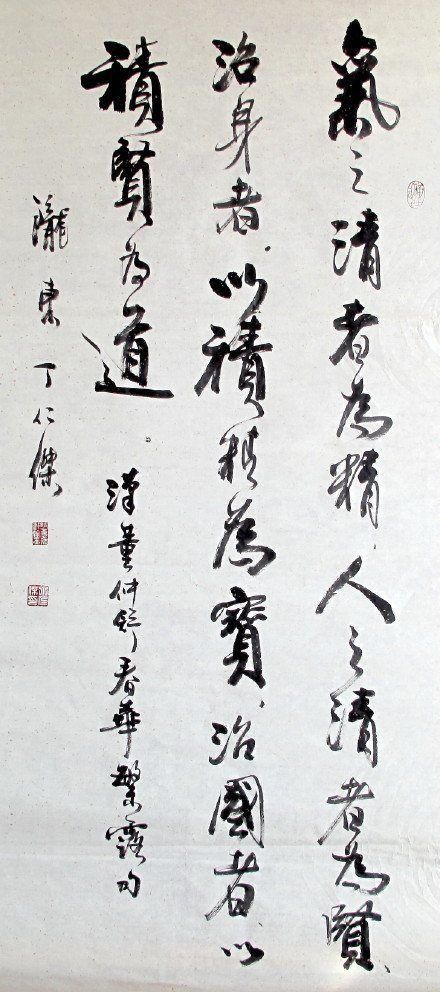 氣之清者為精人之清者為賢
治身者以積精為寶治國者以
積賢為道
漢董仲舒春華繁露句
隴東丁仁傑